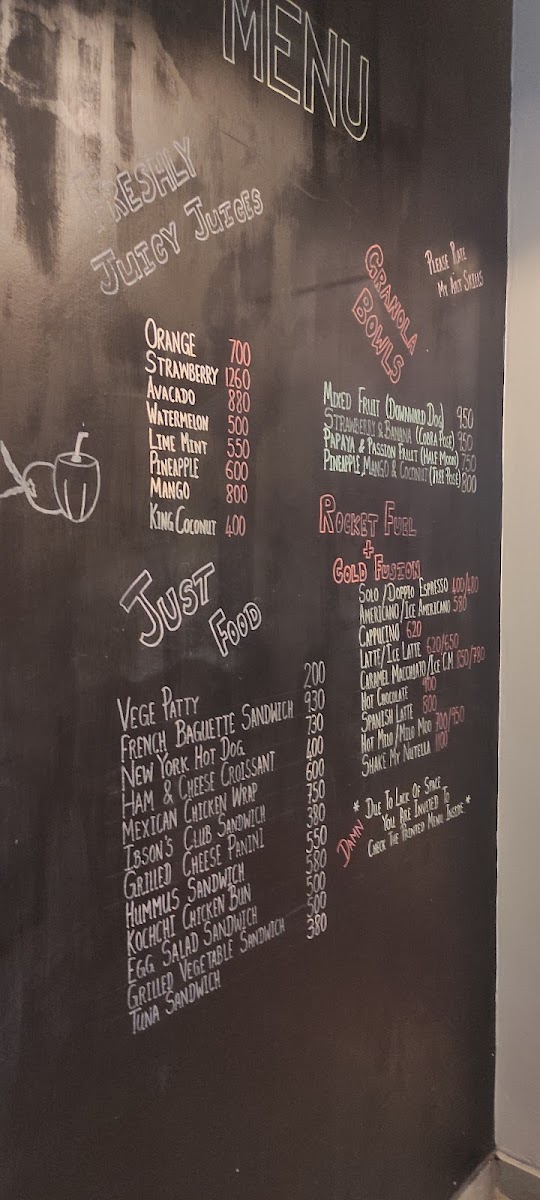 MENU
FRESHLY
JUICY JUICES
ORANGE 700
STRAWBERRY 1260
AVACADO 880
WATERMELON 500
LIME MINT 550
PINEAPPLE 600
MANGO 800
KING COCONUT 400
JUST
FOOD
VEGE PATTY 200
FRENCH BAGUETTE SANDWICH 930
NEW YORK HOT DOG 730
HAM & CHEESE CROISSANT 400
MEXICAN CHICKEN WRAP 600
IBSON'S CLUB SANDWICH 750
GRILLED CHEESE PANINI 380
HUMMUS SANDWICH 550
KOCHCHI CHICKEN BUN 580
EGG SALAD SANDWICH 500
GRILLED VEGETABLE SANDWICH 500
TUNA SANDWICH 380
PLEASE RATE
MY ART SKILLS
GRANOLA
BOWLS
MIXED FRUIT (DOWNWARD DOG) 950
STRAWBERRY & BANANA (COBRA POSE) 950
PAPAYA & PASSION FRUIT (HALF MOON) 750
PINEAPPLE, MANGO & COCONUT (TREE POSE) 800
ROCKET FUEL
+
COLD FUSION
SOLO/DOPPIO ESPRESSO 400/480
AMERICANO/ICE AMERICANO 580
CAPPUCINO 620
LATTE/ICE LATTE 620/650
CARAMEL MACCHIATO/ICE C.M 750/780
HOT CHOCOLATE 900
SPANISH LATTE 800
HOT MILO/MILO MOO 700/950
SHAKE MY NUTELLA 1100
* DUE TO LACK OF SPACE
YOU ARE INVITED TO
CHECK THE PRINTED MENU INSIDE *
DAMN